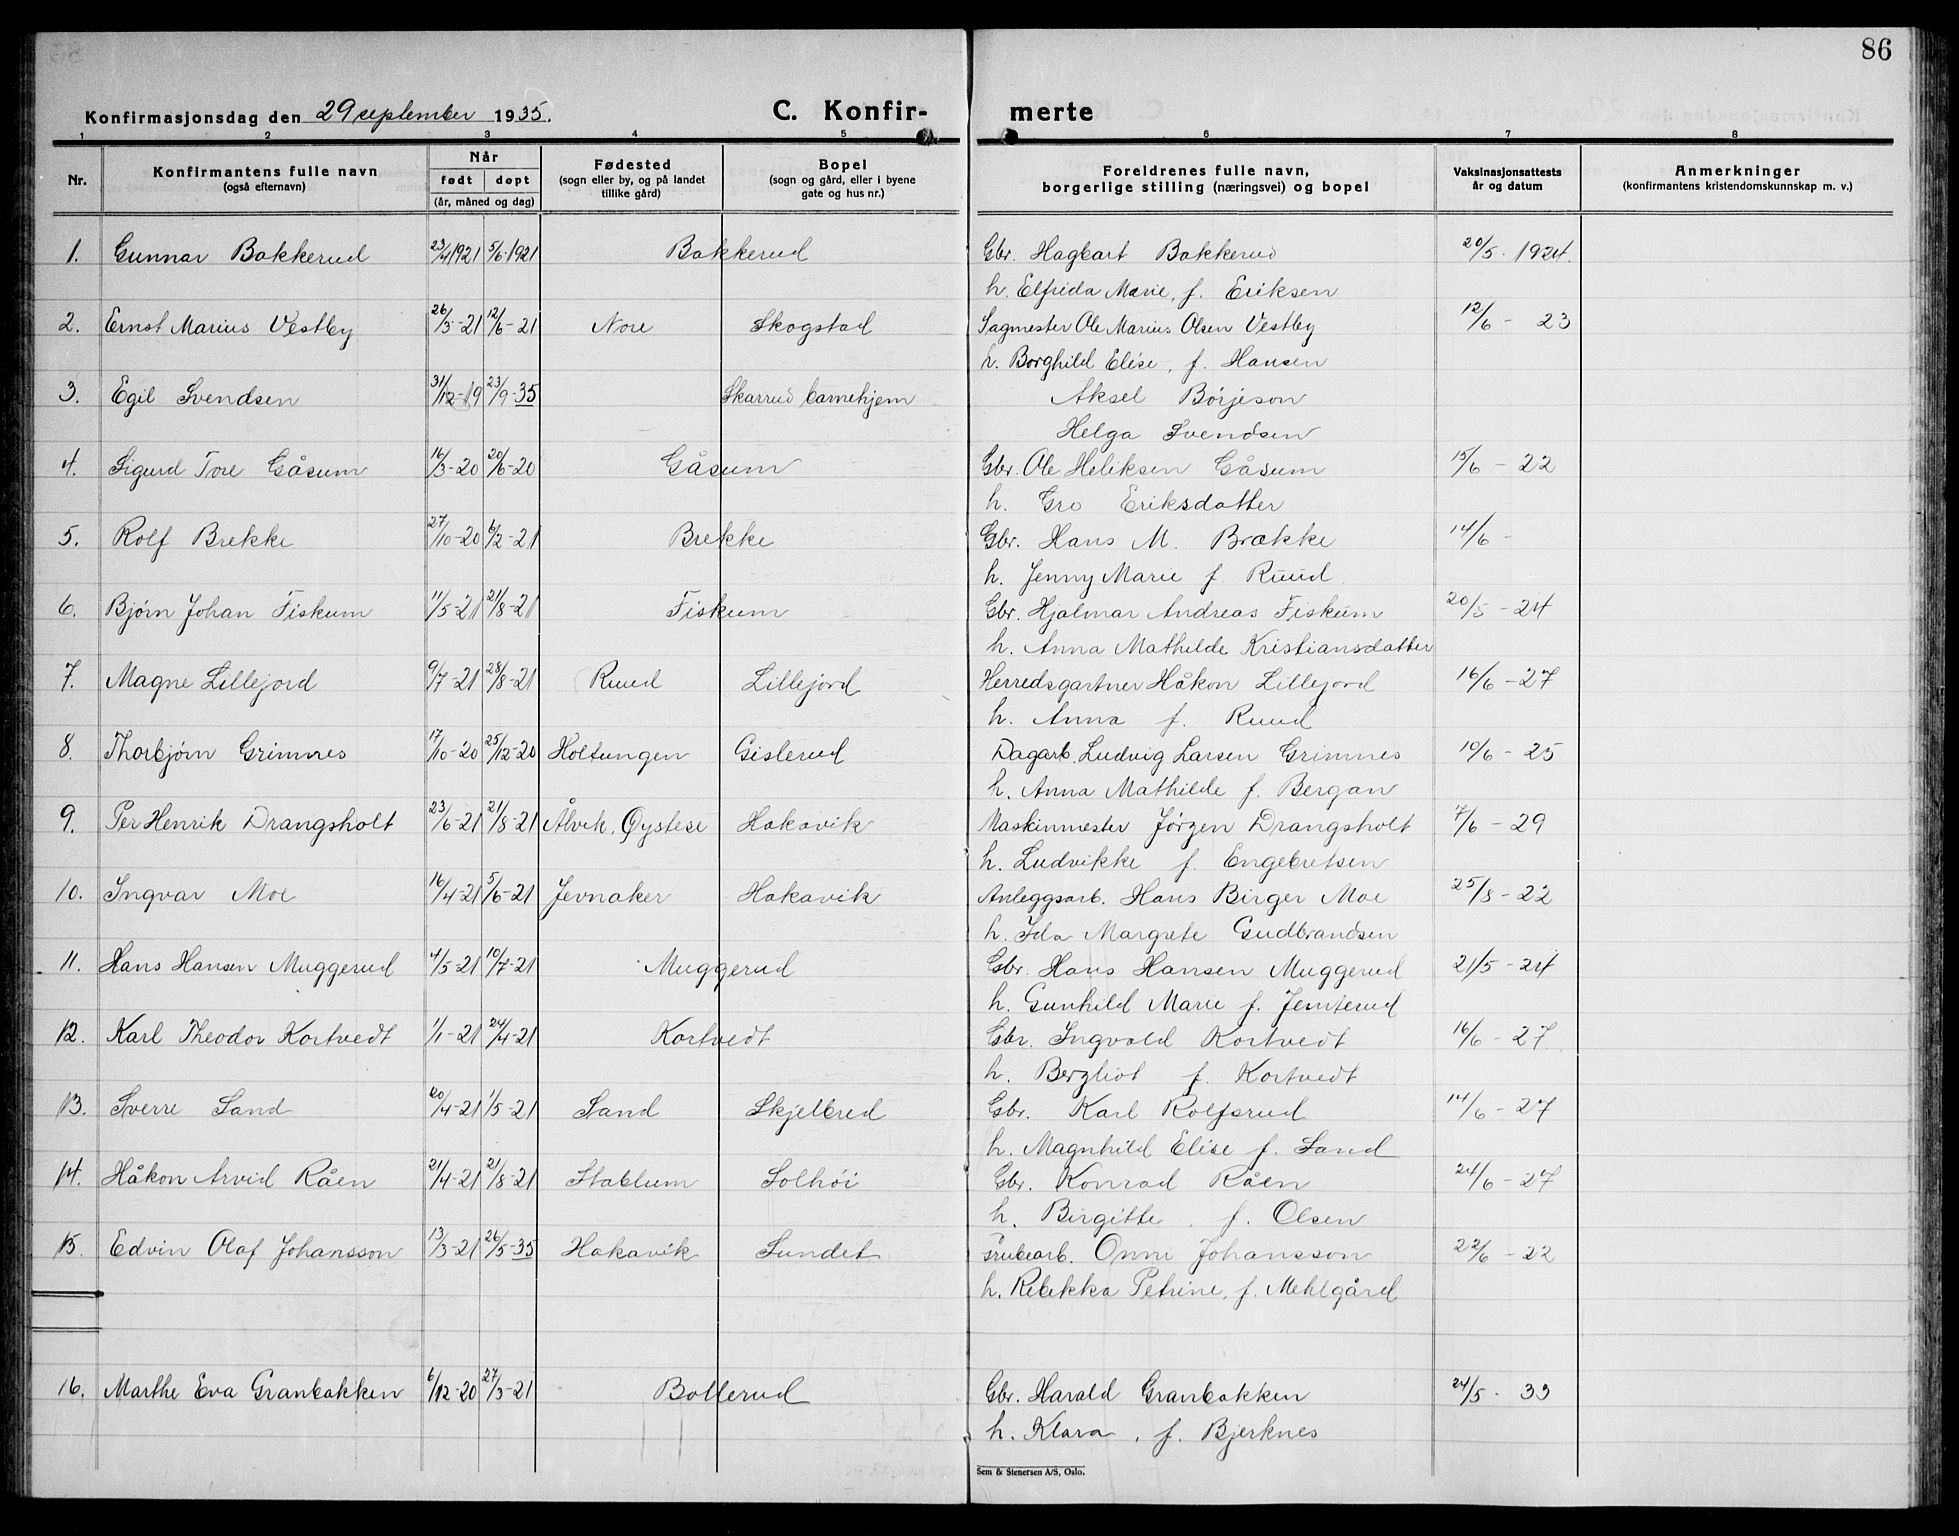 86
Konfirmasjonsdag den 29 september 1935.
C. Konfir-
merte
1 2 3 4 5 6 7 8
Nr.
Konfirmantens fulle navn
(også efternavn)
Når
født døpt
(år, måned og dag)
Fødested
(sogn eller by, og på landet
tillike gård)
Bopel
(sogn og gård, eller i byene
gate og hus nr.)
Foreldrenes fulle navn,
borgerlige stilling (næringsvei) og bopel
Vaksinasjonsattests
år og datum
Anmerkninger
(konfirmantens kristendomskunnskap m. v.)
1. Gunnar Bakkerud 23/4 1921 5/6-1921 Bakkerud Gbr. Hagbart Bakkerud 20/5. 1924.
h. Elfrida Marie, f. Eriksen
2. Ernst Marius Vestby 26/3-21 12/6-21 Nore Skogstad Sagmester Ole Marius Olsen Vestby 12/6 - 23
h. Borghild Elise, f. Hansen
3. Egil Svendsen 31/12-19 23/9-35 Skarrud barnehjem Aksel Börjeson
Helga Svendsen
4. Sigurd Tore Gåsum 16/3-20 20/6-20 Gåsum Gbr. Ole Heliksen Gåsum 15/6 - 22
h. Gro Eriksdatter
5. Rolf Brekke 27/10-20 6/2-21 Brekke Gbr. Hans M. Brække 14/6 -
h. Jenny Marie f. Ruud
6. Bjørn Johan Fiskum 11/5-21 21/8-21 Fiskum Gbr. Hjalmar Andreas Fiskum 20/5 - 24
h. Anna Mathilde Kristiansdatter
7. Magne Lillejord 9/7-21 28/8-21 Ruud Lillejord Herredsgartner Håkon Lillejord 16/6 - 27
h. Anna f. Ruud
8. Thorbjørn Grimnes 17/10-20 25/12-20 Holtungen Gislerud Dagarb. Ludvig Larsen Grimnes 10/6 - 25
h. Anna Mathilde f. Bergan
9. Per Henrik Drangsholt 23/6-21 21/8-21 Ålvik, Øystese Hakavik Maskinmester Jørgen Drangsholt 7/6 - 29
h. Ludvikke f. Engebretsen
10. Ingvar Moe 16/4-21 5/6-21 Jevnaker Hakavik Anleggsarb. Hans Birger Moe 25/8 - 22
h. Ida Margrete Gudbrandsen
11. Hans Hansen Muggerud 4/5-21 10/7-21 Muggerud Gbr. Hans Hansen Muggerud 21/5 - 24
h. Gunhild Marie f. Jemterud
12. Karl Theodor Kortvedt 1/1-21 24/4-21 Kortvedt Gbr. Ingvald Kortvedt 16/6 - 27
h. Bergliot f. Kortvedt
13. Sverre Sand 20/4-21 1/5-21 Sand Skjelbred Gbr. Karl Rolfsrud 14/6 - 27
h. Magnhild Elise f. Sand
14. Håkon Arvid Råen 21/4-21 21/8-21 Stablum Solhöi Gbr. Konrad Råen 24/6 - 27
h. Birgitte, f. Olsen
15. Edvin Olaf Johansson 13/3-21 26/5-35 Hakavik Sundet Grubearb. Onni Johansson 22/6 - 22
h. Rebekka Petrine, f. Mehlgård
16. Marthe Eva Granbakken 6/12-20 27/3-21 Bollerud Gbr. Harald Granbakken 24/5 - 33
h. Klara, f. Bjerknes
Sem & Stenersen A/S, Oslo.